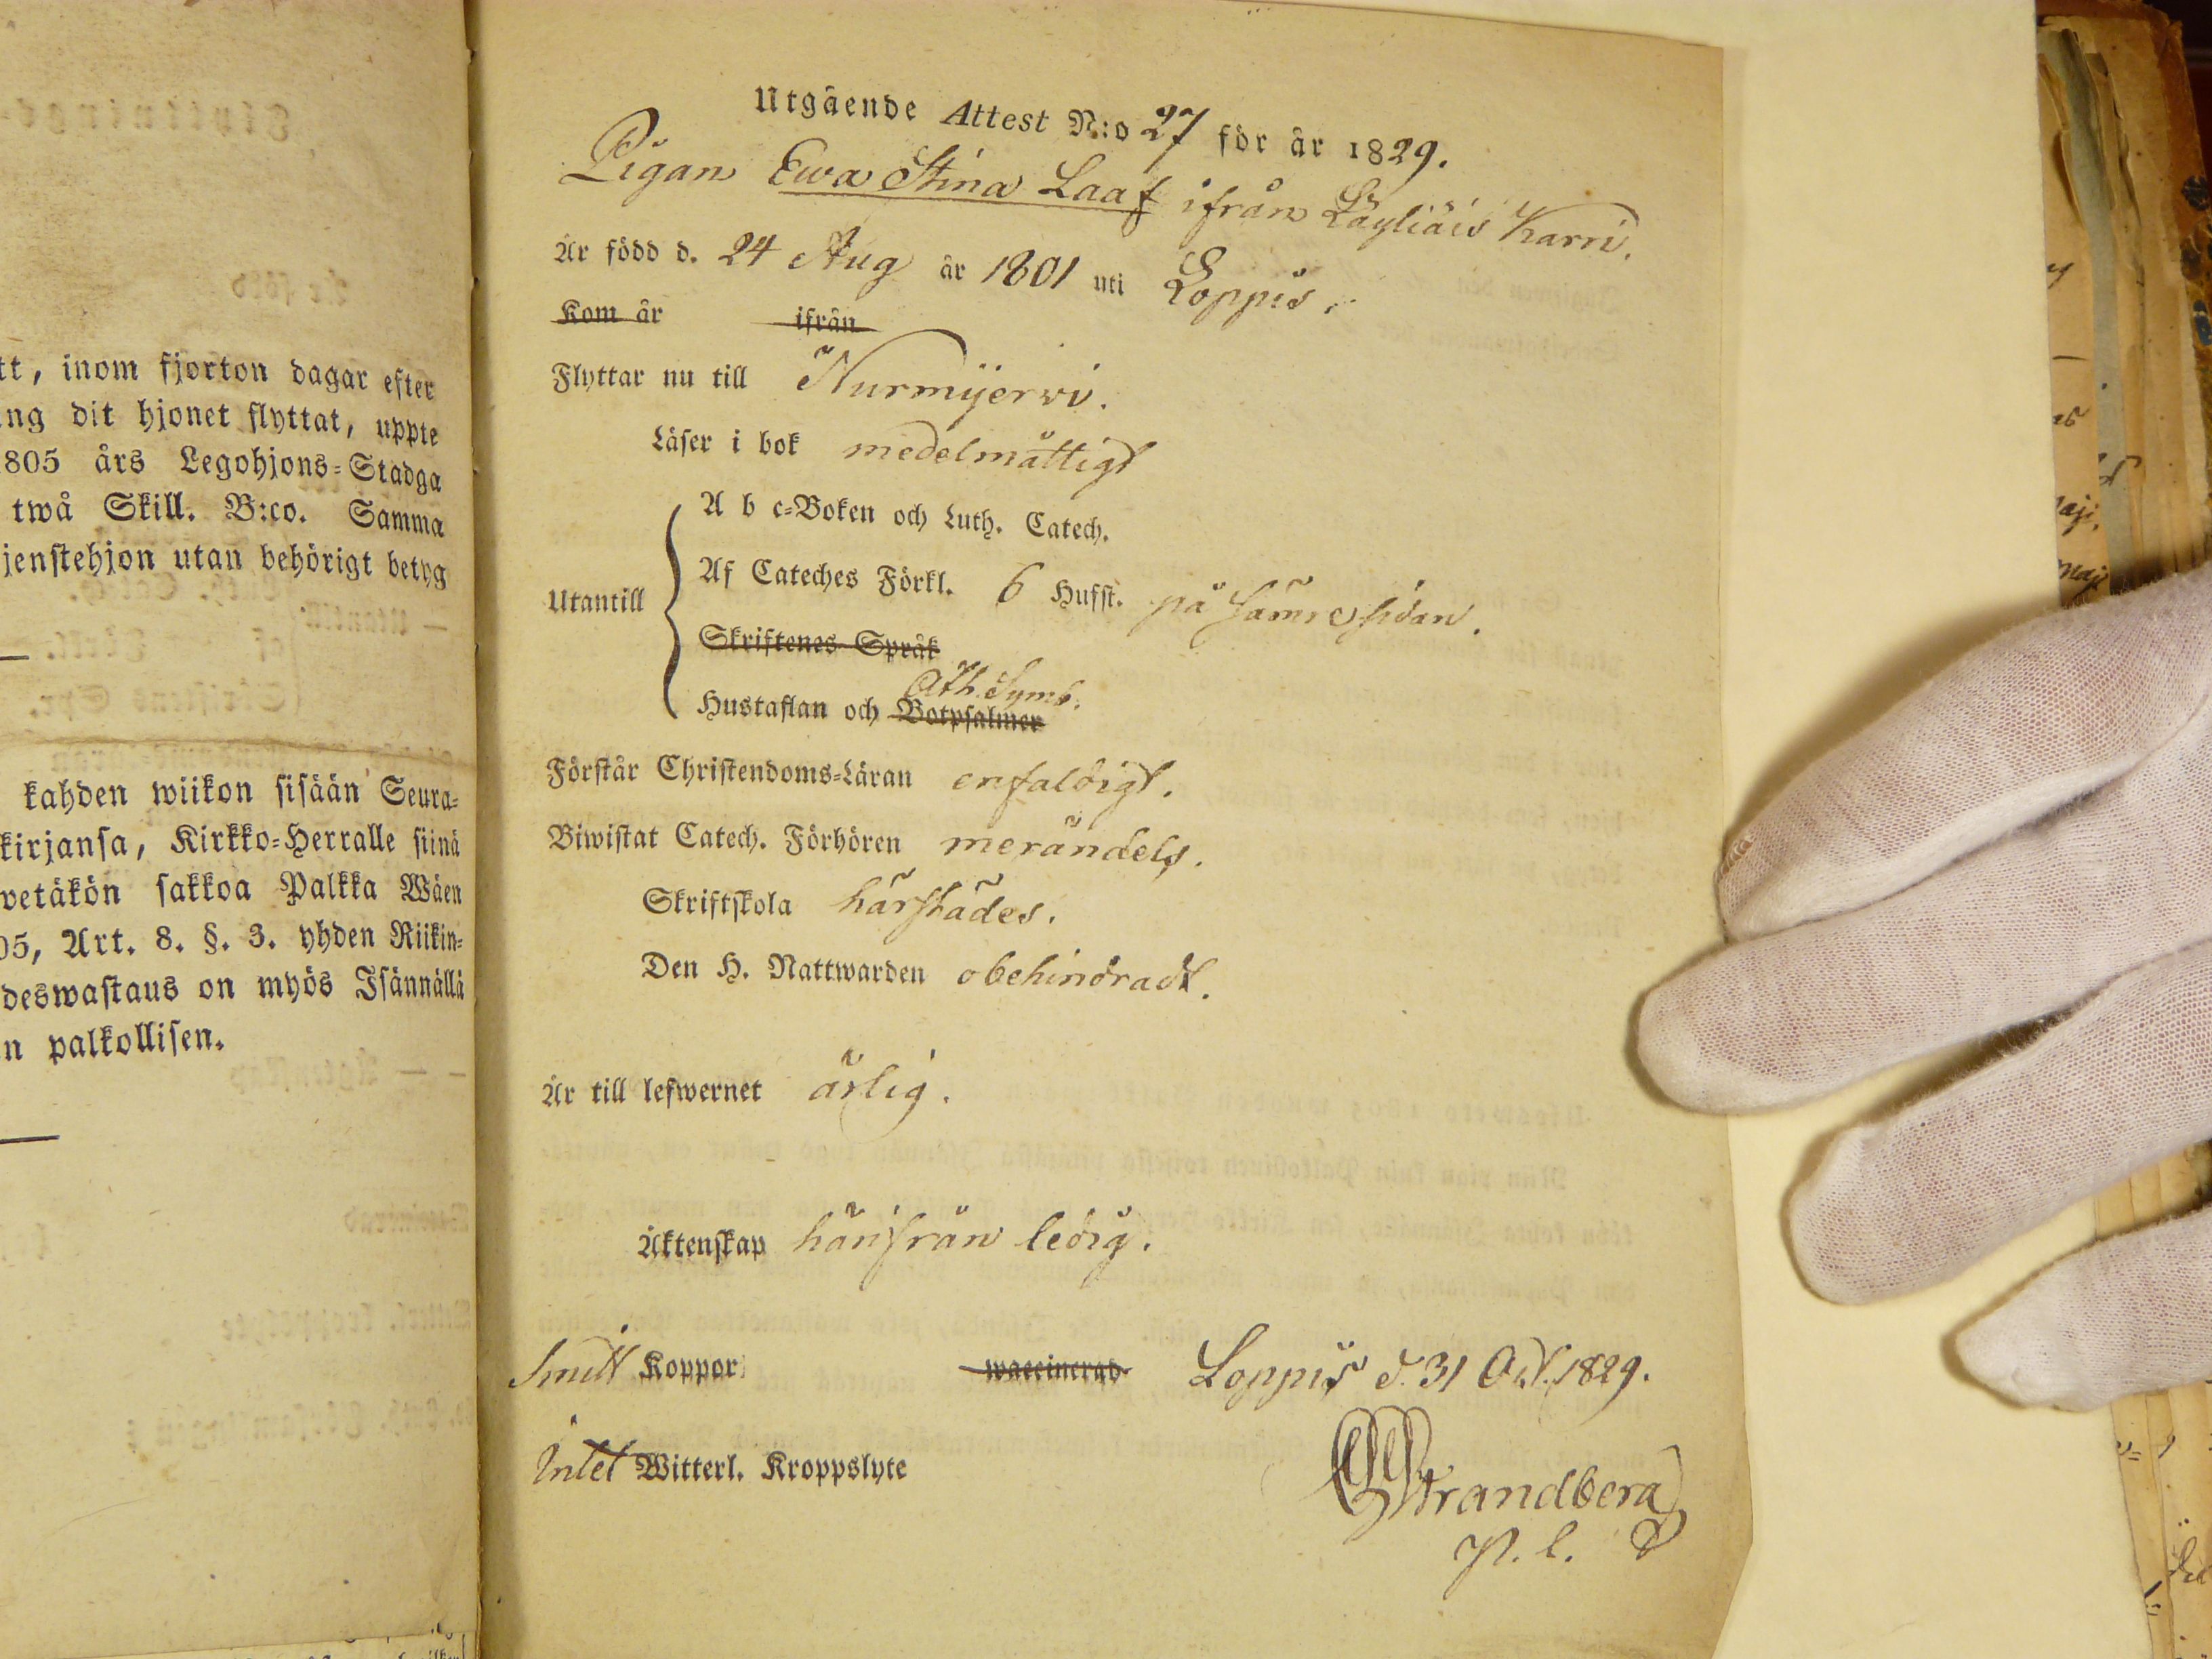 tt, inom fjorton dagar efter
ng dit hjonet flyttat, uppte
805 års Legohjons-Stadga
twå Skill. B:co. Samma
jenstehjon utan behörigt betyg
kahden wiikon sisään Seura-
kirjansa, Kirkko-Herralle siinä
wetäkön sakkoa Palkka Wäen
05, Art. 8. §. 3. yhden Riikin-
deswastaus on myös Isännällä
n palkollisen.
Utgående Attest N:o 27 för år 1829.
Pigan Ewa Stina Laaf ifrån Läyliäis Karri.
Är född d. 24 Aug år 1801 uti Loppis.
Kom år ifrån
Flyttar nu till Nurmijerwi.
Läser i bok medelmåttigt
A b c-Boken och Luth. Catech.
Af Cateches Förkl. 6 Hufst. på sämre sidan.
Utantill
Skriftenes Språk
Ath. Symb.
Hustaflan och Botpsalmer
Förstår Christendoms-Läran enfaldigt.
Biwistat Catech. Förhören merändels.
Skriftskola härstädes.
Den H. Nattwarden obehindradt.
Är till lefwernet ärlig.
Äktenskap härifrån ledig.
Smitt Koppor waccinerad Loppis d. 31 Oct. 1829.
Intet Witterl. Kroppslyte
Strandberg